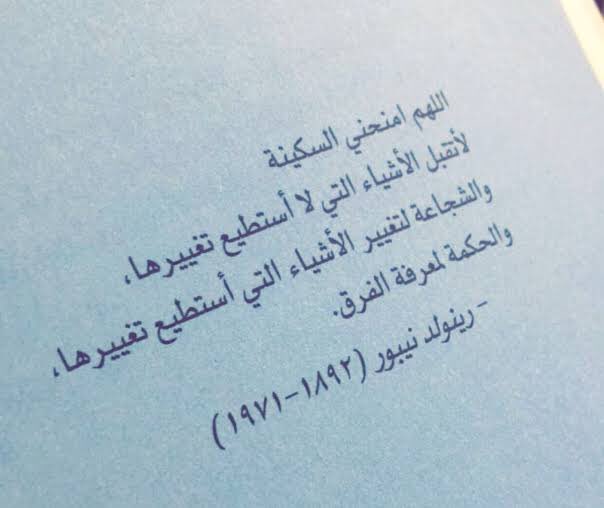 اللهم امنحني السكينة
لأتقبل الأشياء التي لا أستطيع تغييرها،
والشجاعة لتغيير الأشياء التي أستطيع تغييرها،
والحكمة لمعرفة الفرق.
- رينولد نيبور (١٨٩٢-١٩٧١)